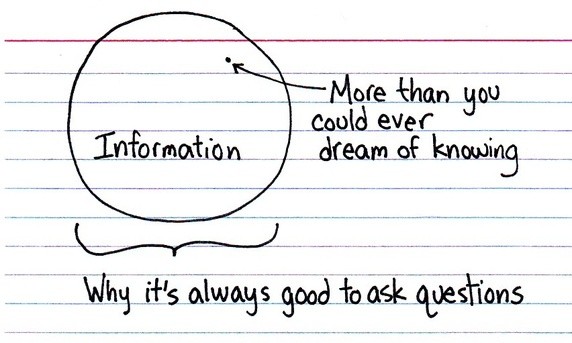 More than you
could ever
dream of knowing
Information
Why it's always good to ask questions